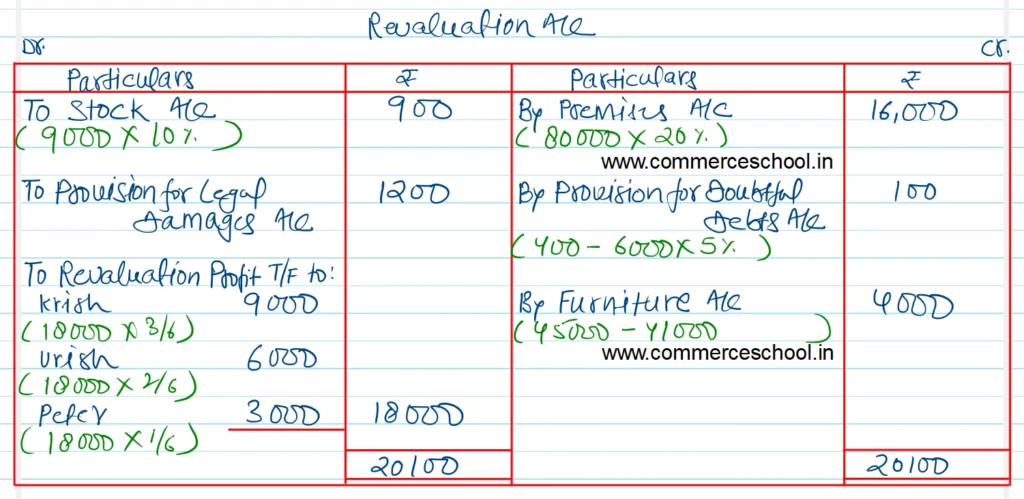 Revaluation A/c
Dr. Cr.
Particulars ₹ Particulars ₹
To Stock A/c 900 By Premises A/c 16,000
(9000 × 10%) (80000 × 20%)
www.commerceschool.in
To Provision for Legal 1200 By Provision for Doubtful 100
Damages A/c Debts A/c
(400 - 6000 × 5%)
To Revaluation Profit T/F to:
Krish 9000 By Furniture A/c 4000
(18000 × 3/6) (45000 - 41000)
Urish 6000 www.commerceschool.in
(18000 × 2/6)
Peter 3000 18000
(18000 × 1/6)
20100 20100